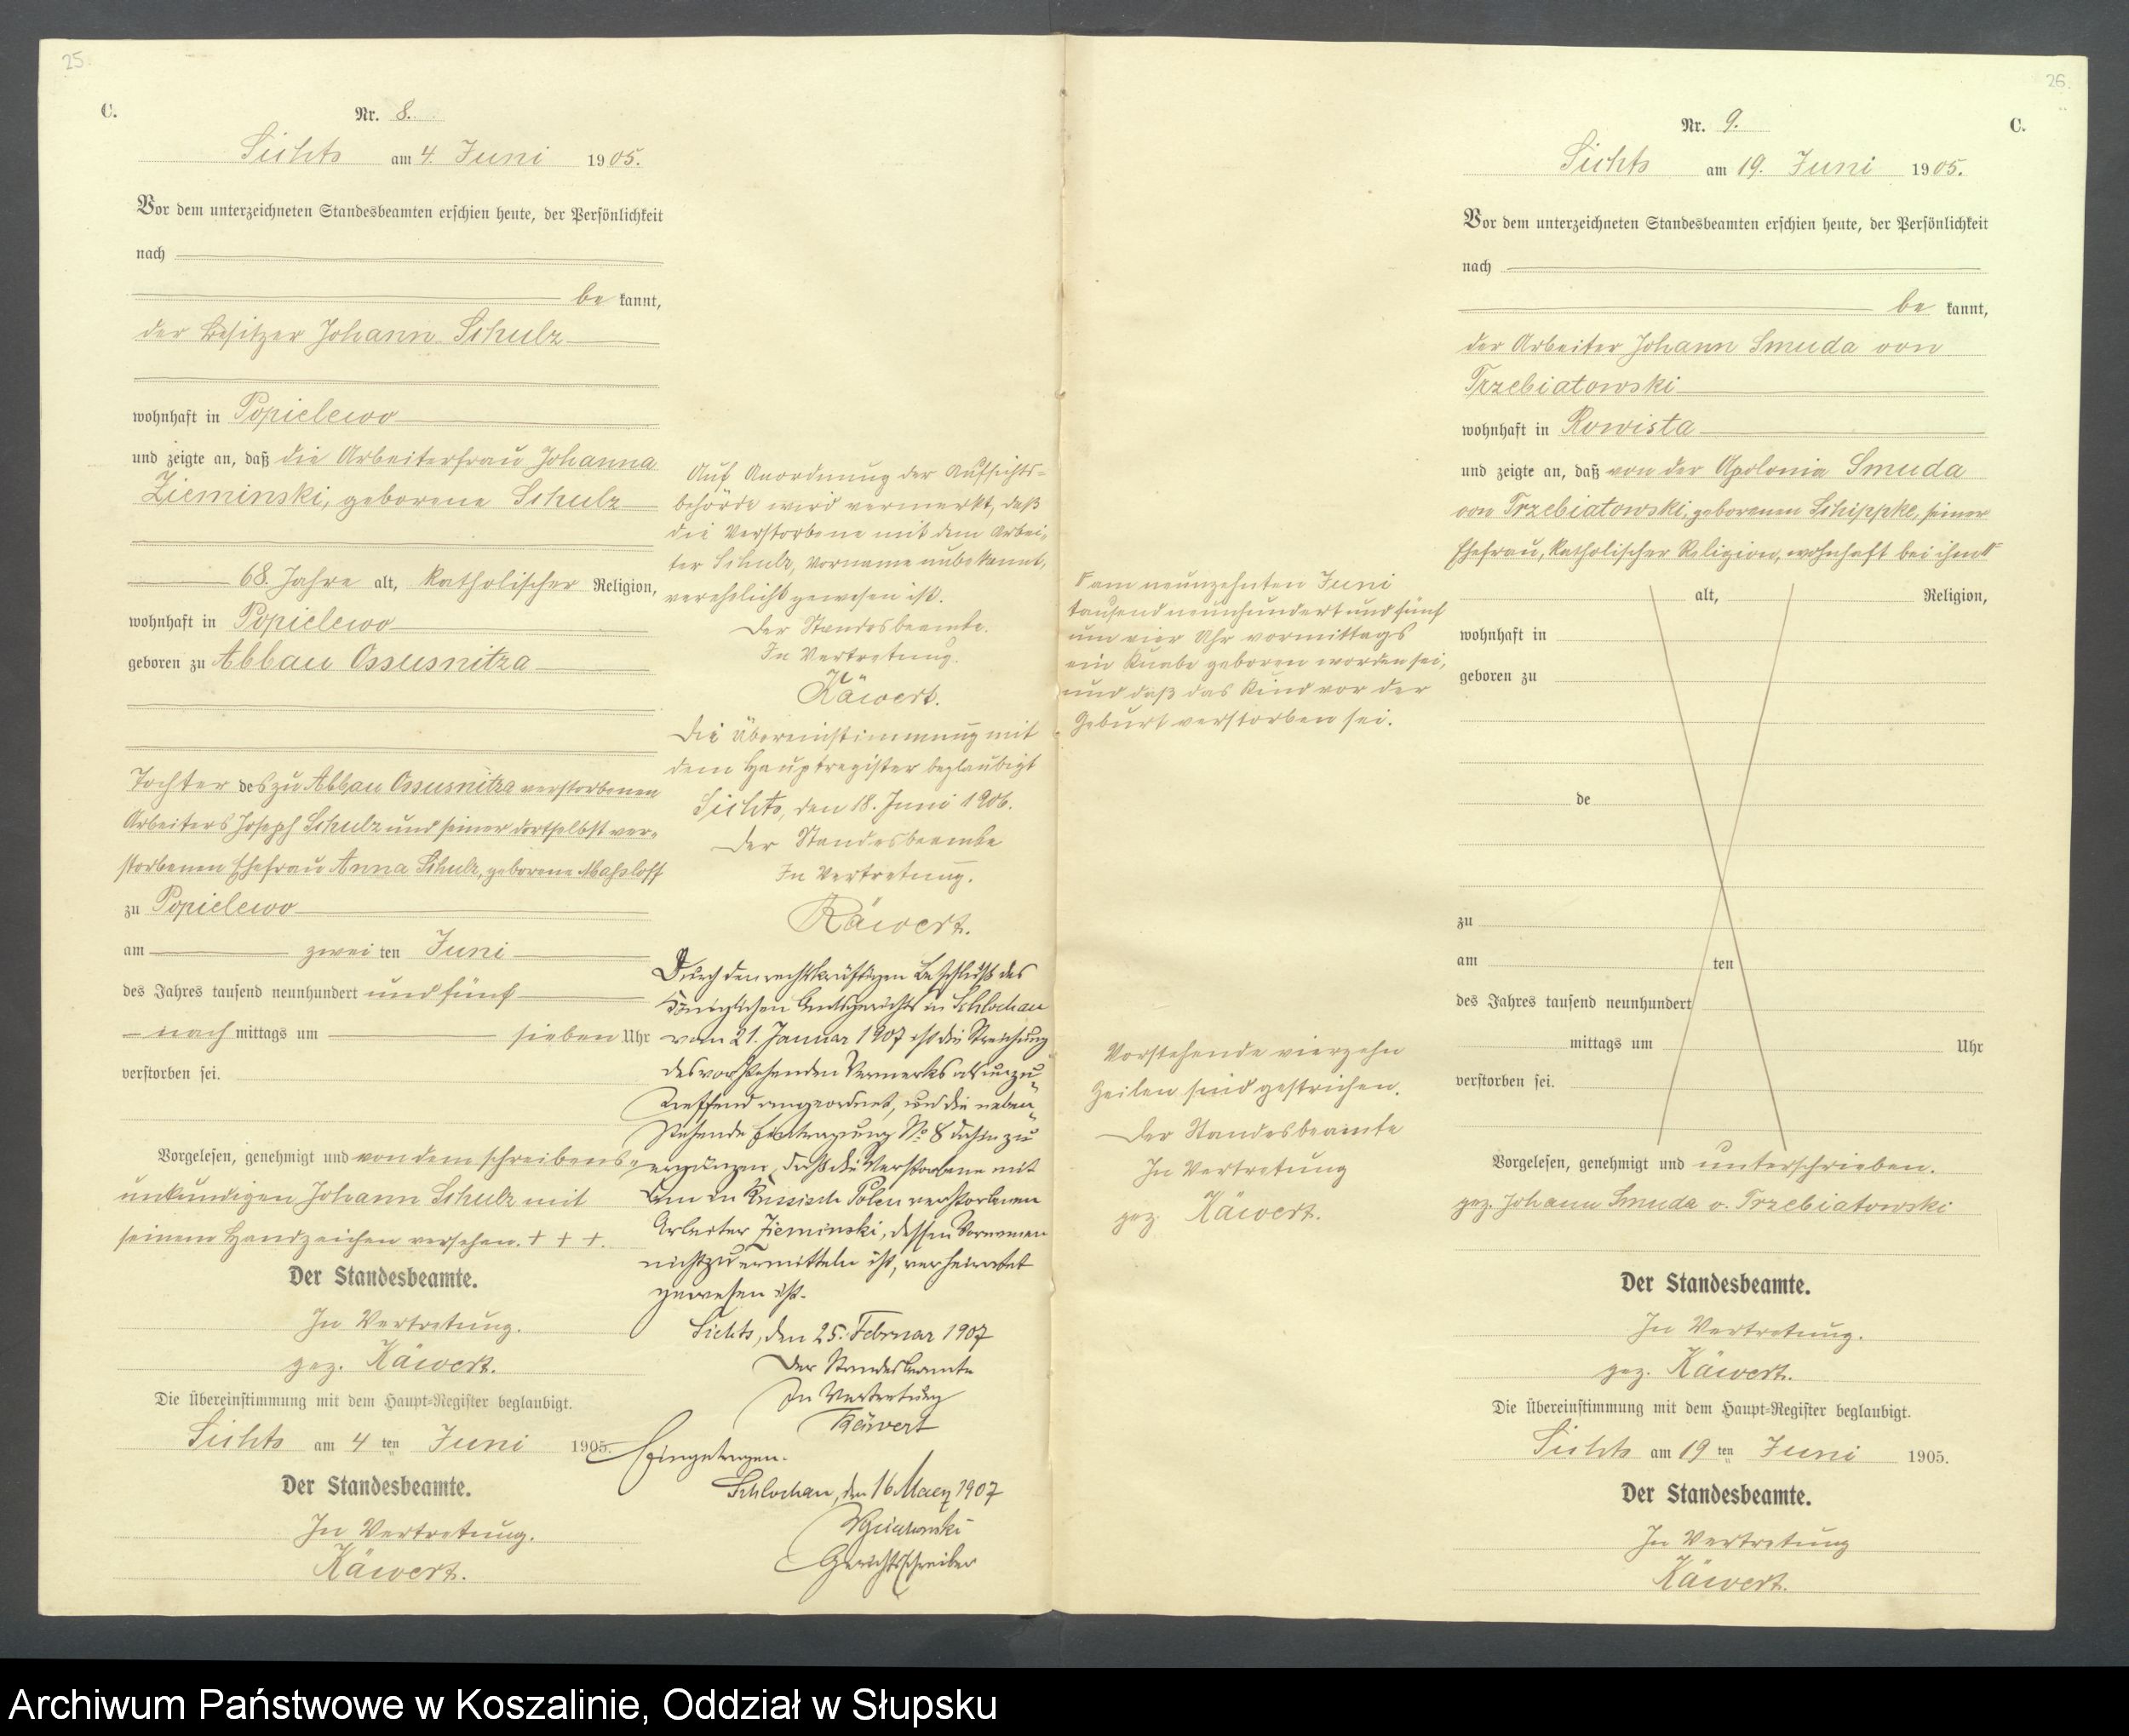 25.
C.
Nr. 8.
Sichts am 4. Juni 1905.
Vor dem unterzeichneten Standesbeamten erschien heute, der Persönlichkeit
nach
be kannt,
der Besitzer Johann Schulz
wohnhaft in Popielewo
und zeigte an, daß die Arbeiterfrau Johanna
Zieminski, geborene Schulz
68 Jahre alt, katholischer Religion,
wohnhaft in Popielewo
geboren zu Abbau Ossusnitza
Tochter des zu Abbau Ossusnitza verstorbenen
Arbeiters Joseph Schulz und seiner dortselbst ver-
storbenen Ehefrau Anna Schulz, geborene
zu Popielewo
am zwei ten Juni
des Jahres tausend neunhundert und fünf
nach mittags um sieben Uhr
verstorben sei.
Vorgelesen, genehmigt und von dem schreibens-
unkundigen Johann Schulz mit
seinem Handzeichen versehen. + + +.
Der Standesbeamte.
In Vertretung.
gez. Käwert.
Die Übereinstimmung mit dem Haupt-Register beglaubigt.
Sichts am 4 ten Juni 1905.
Der Standesbeamte.
In Vertretung.
Käwert.
Auf Anordnung der Aufsichts-
behörde wird vermerkt, daß
die Verstorbene mit dem Arbei-
ter Schulz, Vorname unbekannt,
verehelicht gewesen ist.
Der Standesbeamte.
In Vertretung.
Käwert.
Die Übereinstimmung mit
dem Hauptregister beglaubigt
Sichts, den 18. Juni 1906.
Der Standesbeamte
In Vertretung.
Käwert.
Durch den rechtskräftigen Beschluß des
Königlichen Amtsgerichts in Schlochau
vom 21. Januar 1907 ist die Streichung
des vorstehenden Vermerks als unzu-
treffend angeordnet, und die neben-
stehende Eintragung No 8 dahin zu
ergänzen, daß die Verstorbene mit
dem in Russisch Polen verstorbenen
Arbeiter Zieminski, dessen Vornamen
nicht zu ermitteln ist, verheiratet
gewesen ist.
Sichts, den 25. Februar 1907
Der Standesbeamte
In Vertretung
Käwert
Eingetragen.
Schlochau, den 16 Maerz 1907
Gerichtsschreiber
26.
Nr. 9.
C.
Sichts am 19. Juni 1905.
Vor dem unterzeichneten Standesbeamten erschien heute, der Persönlichkeit
nach
be kannt,
der Arbeiter Johann Smuda von
Trzebiatowski
wohnhaft in Rowista
und zeigte an, daß von der Apolonia Smuda
von Trzebiatowski, geborenen Schippke, seiner
Ehefrau, katholischer Religion, wohnhaft bei ihm
alt, Religion,
wohnhaft in
geboren zu
de
zu
am ten
des Jahres tausend neunhundert
mittags um Uhr
verstorben sei.
Vorgelesen, genehmigt und unterschrieben.
gez. Johann Smuda v. Trzebiatowski
Der Standesbeamte.
In Vertretung.
gez. Käwert.
Die Übereinstimmung mit dem Haupt-Register beglaubigt.
Sichts am 19 ten Juni 1905.
Der Standesbeamte.
In Vertretung
Käwert.
am neunzehnten Juni
tausend neunhundert und fünf
um vier Uhr vormittags
ein Knabe geboren worden sei,
und daß das Kind vor der
Geburt verstorben sei.
Vorstehende vierzehn
Zeilen sind gestrichen.
Der Standesbeamte
In Vertretung
gez. Käwert.
Archiwum Państwowe w Koszalinie, Oddział w Słupsku